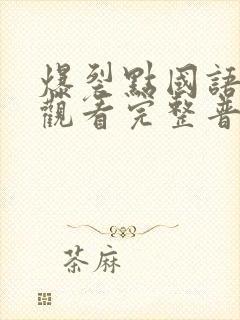 爆裂點國語
觀看完整普
茶麻